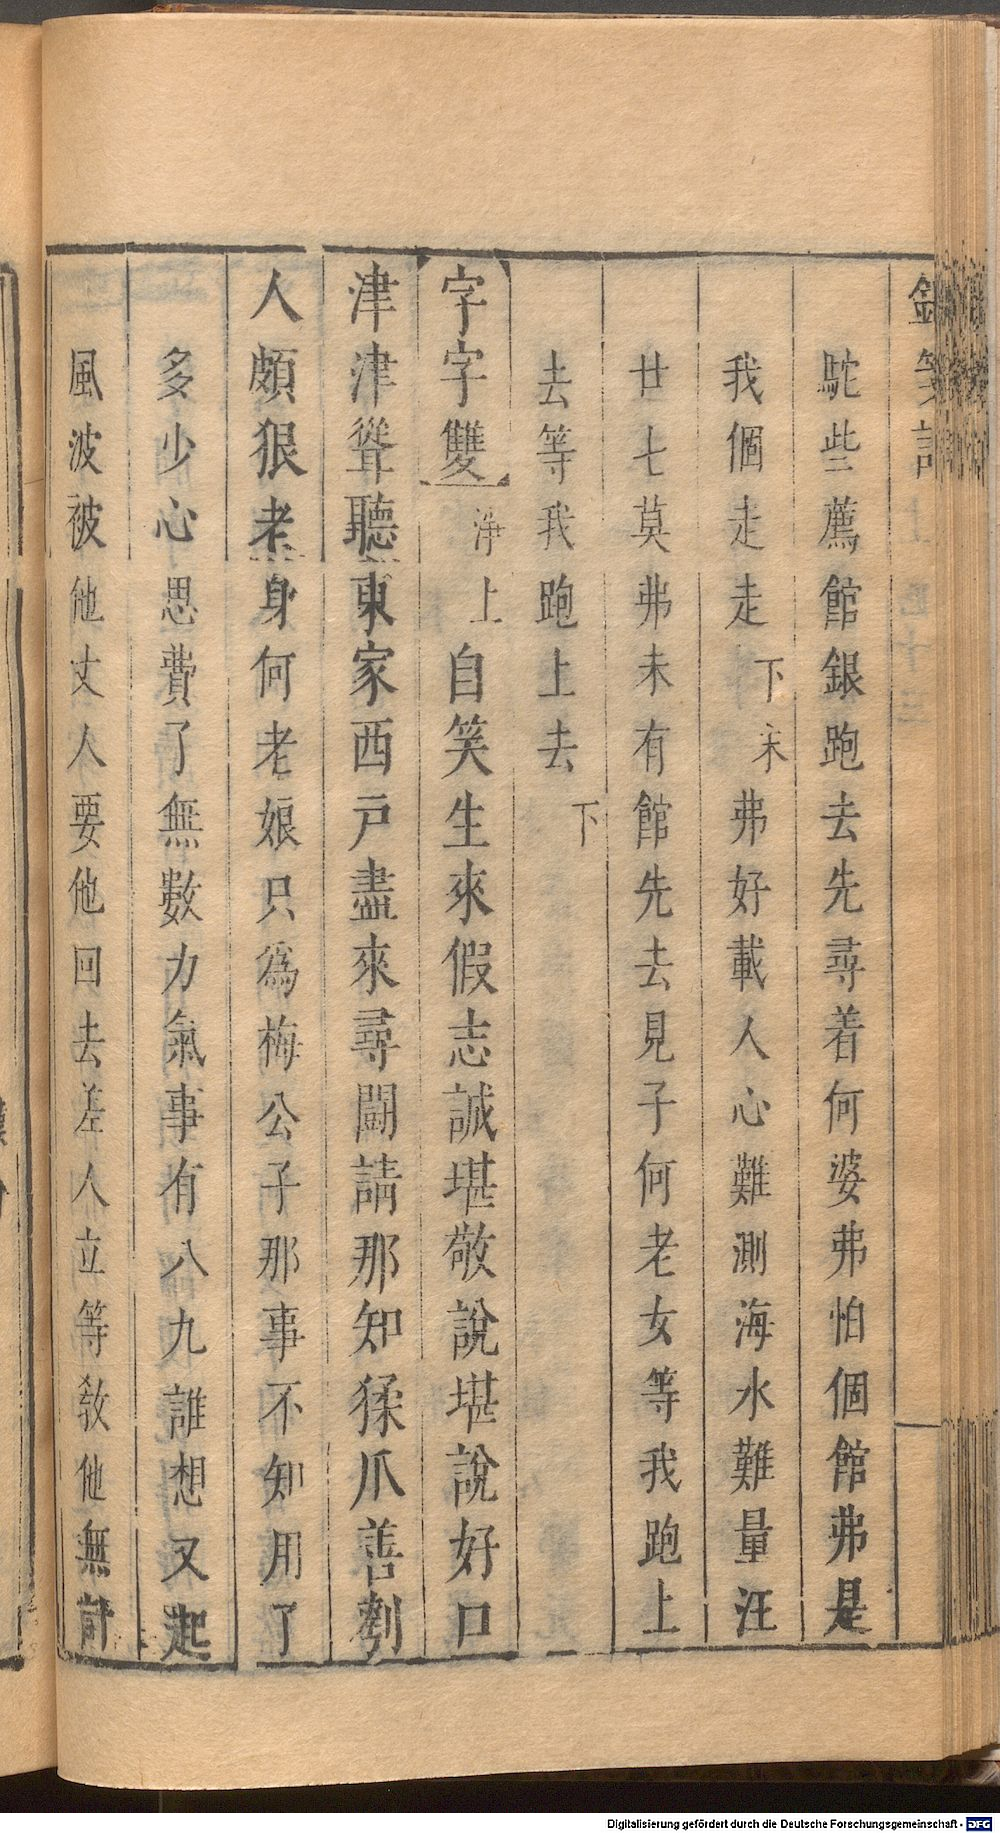 駝些薦館銀跑去先尋着何婆弗怕個館弗是
我個走走下末弗好載人心難測海水難量汪
廿七莫弗未有館先去見子何老女等我跑上
去等我跑上去下
字字雙淨上自笑生來假志誠堪敬說堪說好口
津津聳聽東家西戶盡來尋鬪請那知猱爪善㓨
人頗狠老身何老娘只為梅公子那事不知用了
多少心思費了無數力氣事有八九誰想又起
風波被他丈人要他回去差人立等教他無計
Digitalisierung gefördert durch die Deutsche Forschungsgemeinschaft - DFG